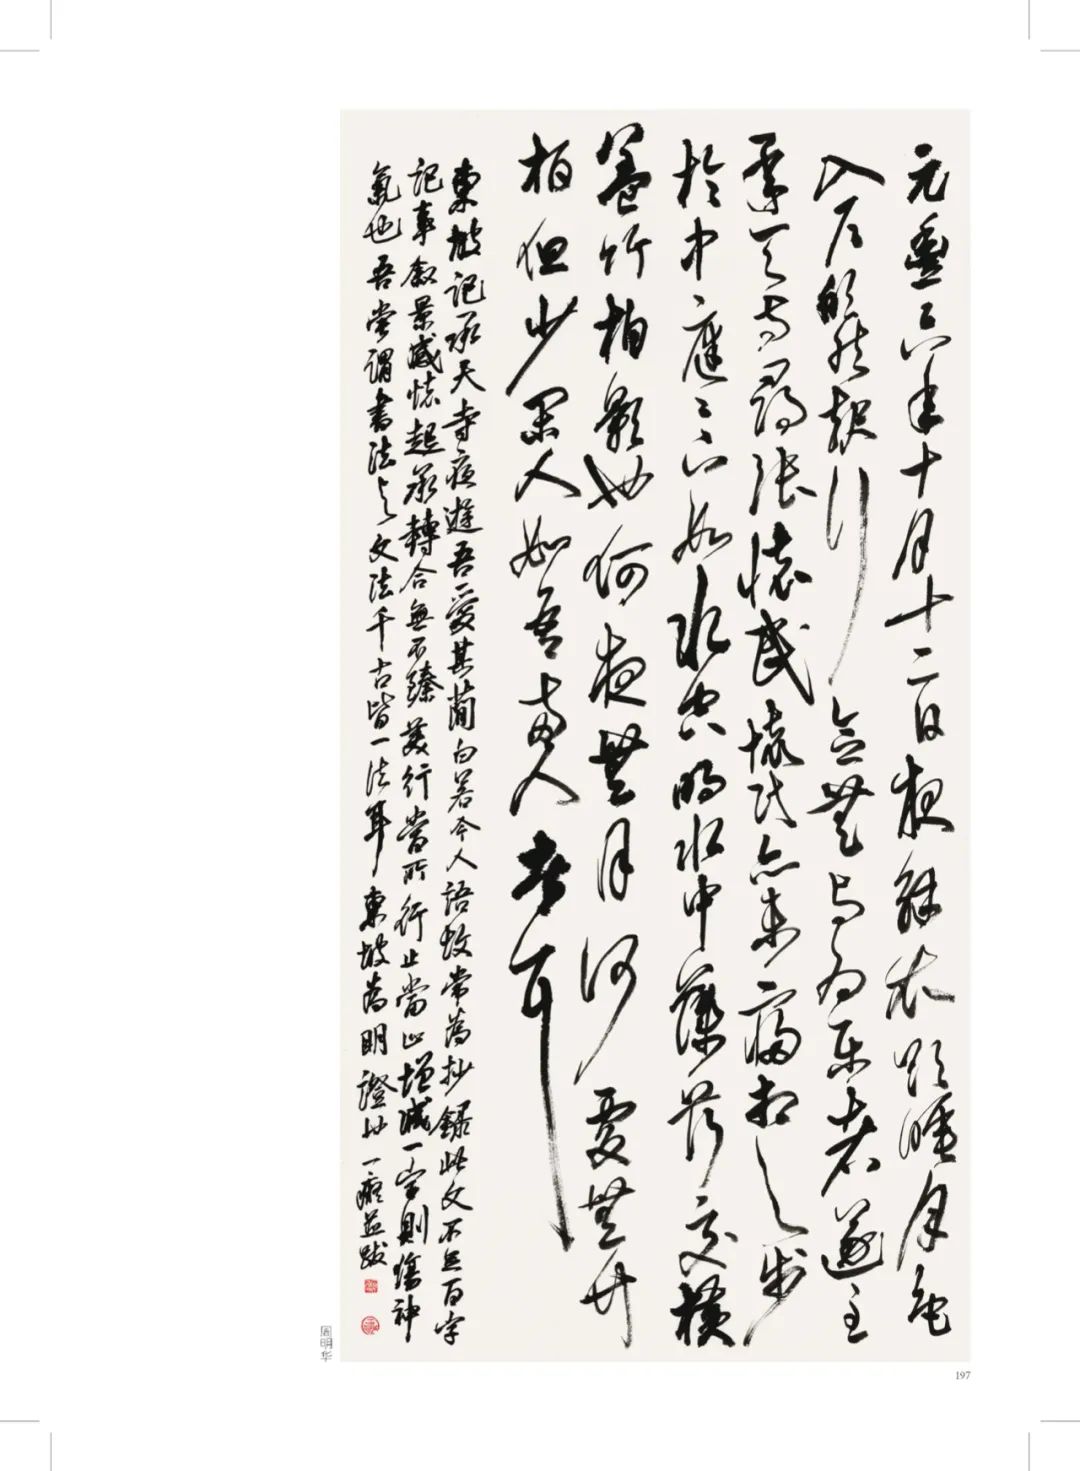 元豐六年十月十二日夜解衣欲睡月色
入户欣然起行念無与为乐者遂至
承天寺尋張懷民懷民亦未寢相与步
於中庭〻下如水空明水中藻荇交橫
蓋竹柏影也何夜無月何處無竹
柏但少閑人如吾两人者耳
東坡記承天寺夜遊吾愛其簡白若今人語故常為抄録此文不足百字
記事叙景感懷起承轉合無不臻美行當所行止當止增減一字則傷神
氣也吾嘗謂書法与文法千古皆一法耳東坡為明證也一癡並跋
周明华
197